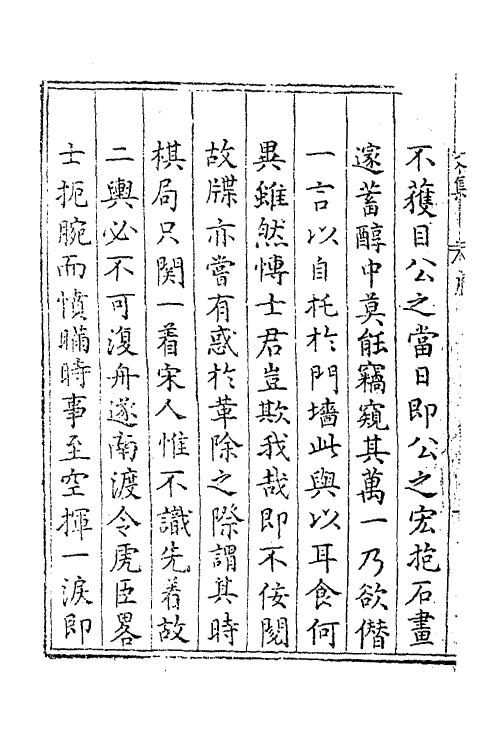 不獲目公之當日即公之宏抱石畫
邃蓄醇中莫能竊窺其萬一乃欲僭
一言以自托於門墻此與以耳食何
異雖然博士君豈欺我哉即不佞閱
故牒亦嘗有惑於革除之際謂其時
棋局只関一看宋人惟不識先着故
二輿必不可復舟遂南渡令虎臣畧
士扼腕而憤瞞時事至空揮一淚即